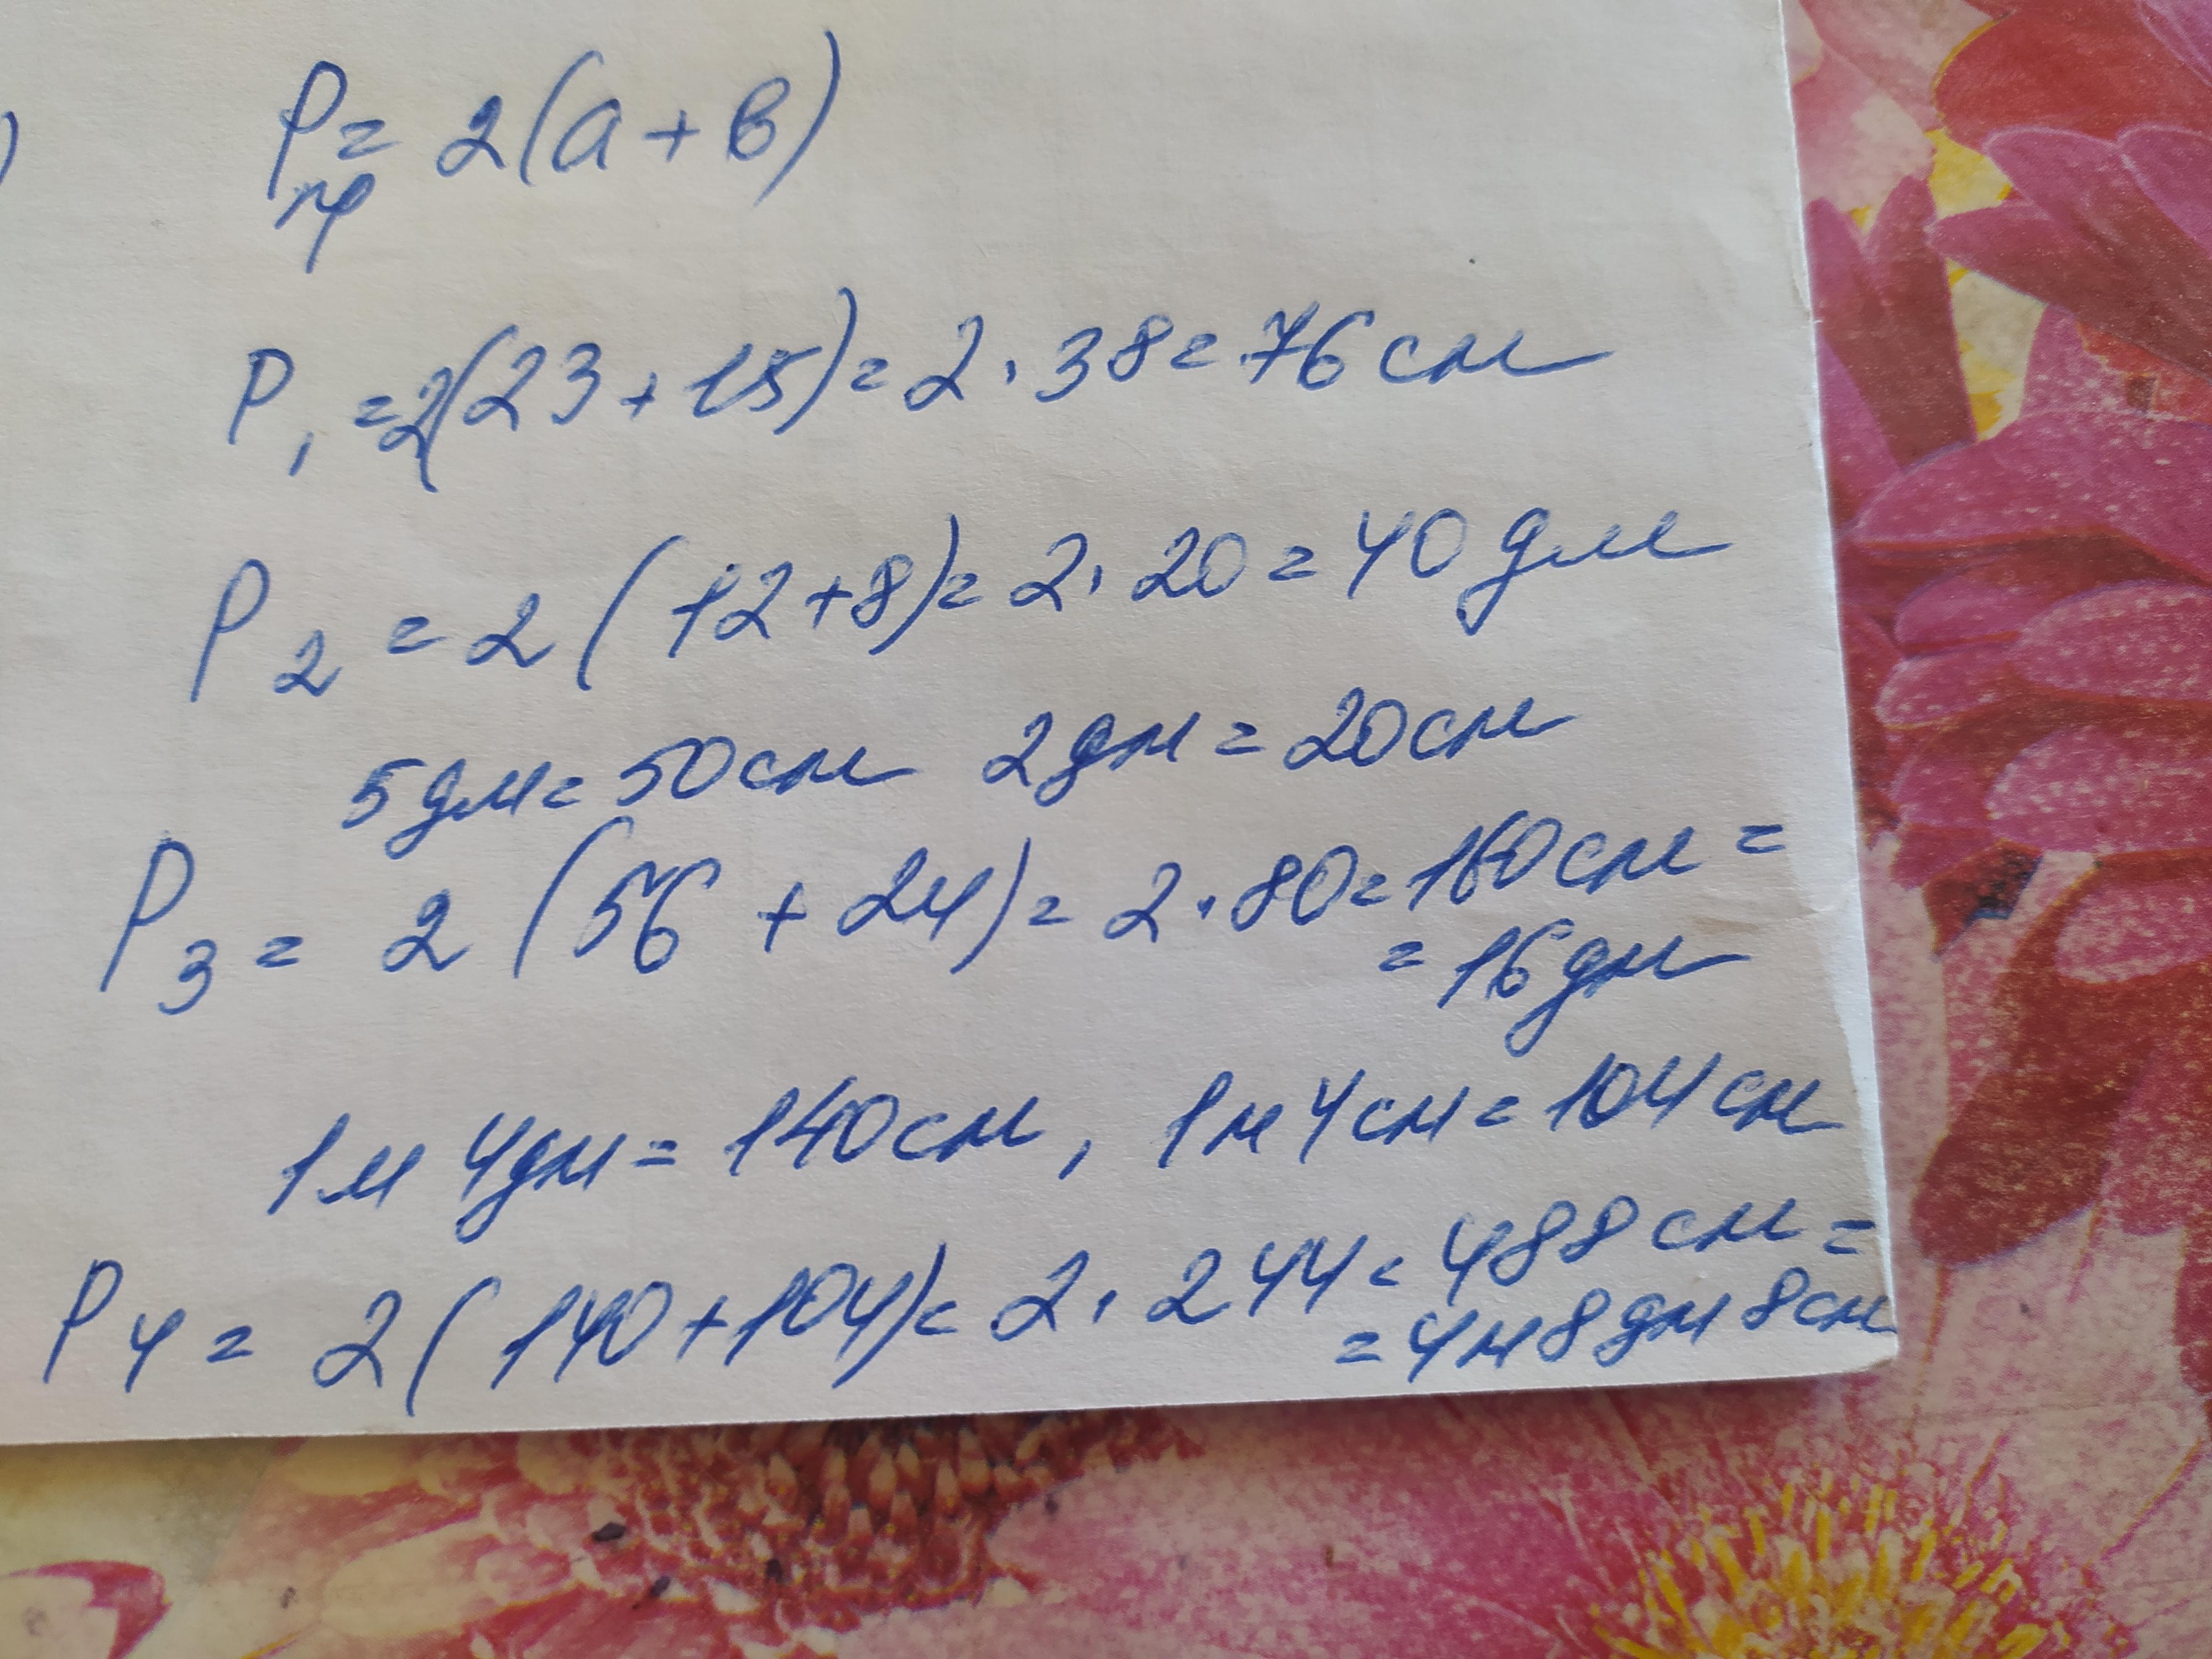 )
Pпр = 2(а + в)
P1 = 2(23 + 15) = 2 · 38 = 76 см
P2 = 2 (12 + 8) = 2 · 20 = 40 дм
5 дм = 50 см 2 дм = 20 см
P3 = 2 (56 + 24) = 2 · 80 = 160 см =
= 16 дм
1 м 4 дм = 140 см, 1 м 4 см = 104 см
P4 = 2 (140 + 104) = 2 · 244 = 488 см =
= 4 м 8 дм 8 см